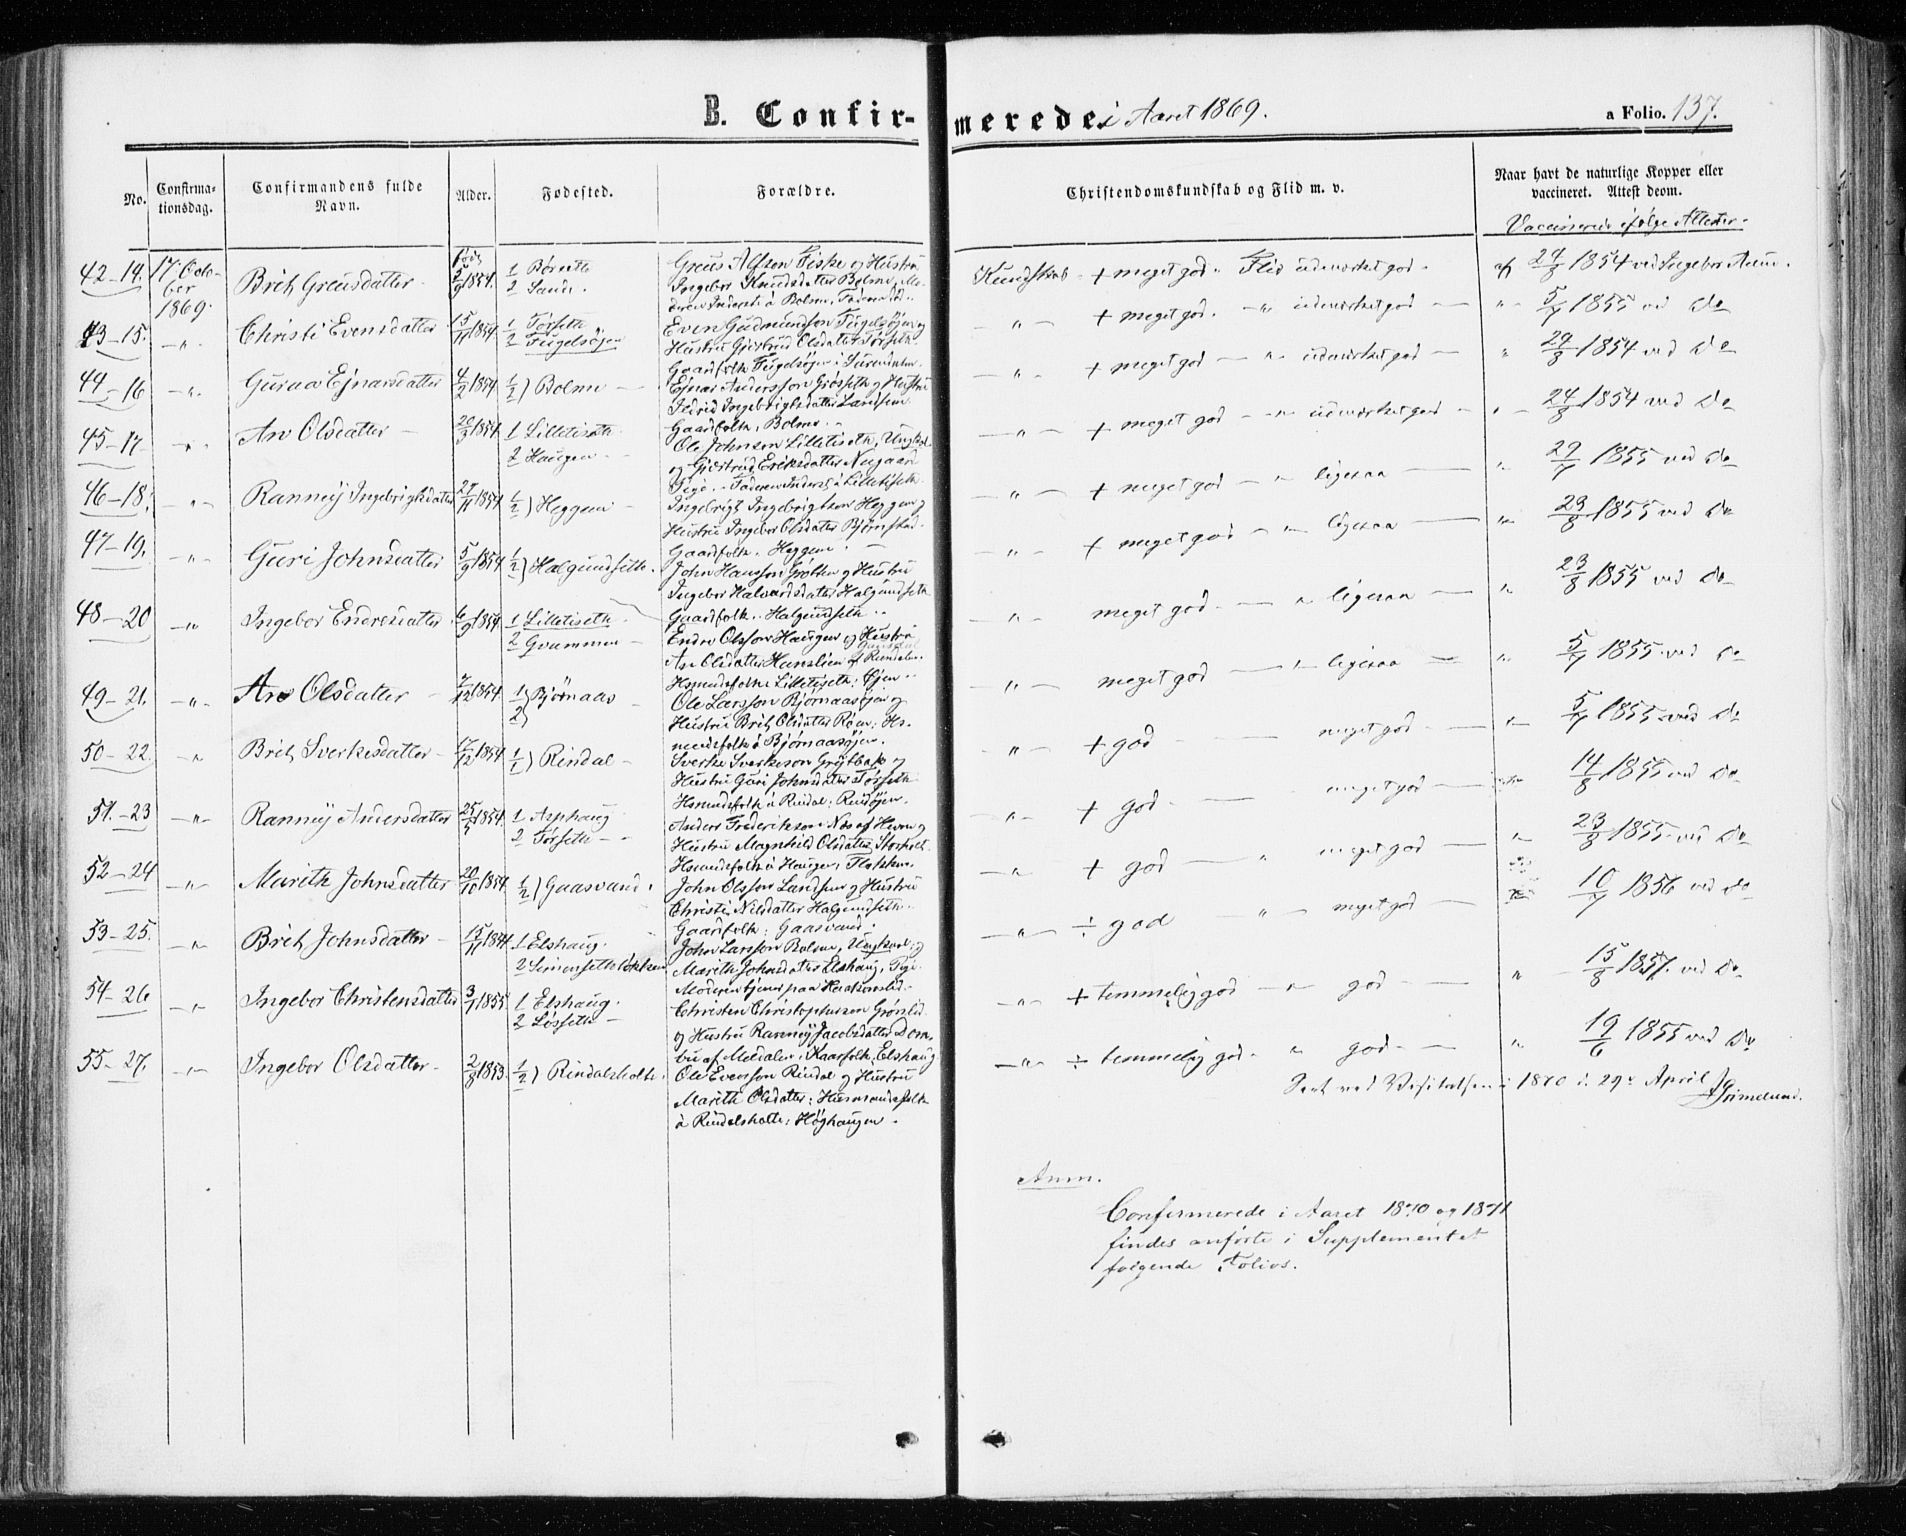 B. Confirmerede i Aaret 1869.
a Folio. 137.
No.
Confirmationsdag.
Confirmandens fulde Navn.
Alder.
Fødested.
Forældre.
Christendomskundskab og Flid m. v.
Naar havt de naturlige Kopper eller vaccineret. Attest deom.
Vaccinerede ifølge Attester.
42-14. 17. October 1869. Brit Greusdatter født 1854. 1 2 Sande. Greus Alfson Fiske og Hustru
Ingebor Knudsdatter Bolme,
Kundskab + meget god. Flid udmærket god. af 1854 ved Ingebor
43-15. „ Christi Evensdatter 15/11 1854 1 Torseth 2 Fugelsöjen Even Gudmundson Fugelsöjen og
Hustru Gjertrud Olsdatter Torseth.
Gaardfolk Fugelsöjen i Surendalen.
„ + meget god. „ udmærket god „ 5/7 1855 ved Do
44-16 „ Guraa Ejnarsdatter 4/2 1854 1/2) Bolme Ejnar Andersson Gröseth og Hustru
Ildrid Ingebrigtsdatter Landsem
Gaardfolk, Bolme.
„ + meget god „ udmærket god „ 29/8 1854 ved Do
45-17. „ Ane Olsdatter 1854 1 Lilletiseth. 2 Haugen Ole Johnson Lilletiseth, Ungkarl
og Gjertrud Eriksdatter Nergaard
Pige. Faderen Inderst à Lilletiseth.
„ + meget god „ udmærket god „ 24/8 1854 ved Do
46-18. „ Rannöy Ingebrigtsdatter 27/11 1854 1/2) Heggem Ingebrigt Ingebrigtson Heggem og
Hustru Ingebor Olsdatter Bjørnstad.
Gaardfolk, Heggem.
„ + meget god „ ligesaa „ 29/7 1855 ved Do
47-19. „ Guri Johnsdatter 5/9 1854 1/2) Halgundseth. John Hansson Grötten og Hustru
Ingebor Halvardsdatter Halgundseth
Gaardfolk. Halgundseth.
„ + meget god „ ligesaa „ 23/8 1855 ved Do
48-20 „ Ingebor Endresdatter 6/9 1854 1 Lilletiseth. 2 Gvammen Endre Olsson Haugen og Hustru
Ane Olsdatter Hanslien af Rindalen.
Hsmndsfolk Lilletiseth:
„ meget god „ ligesaa „ 23/8 1855 ved Do
49-21. „ Ane Olsdatter 1854 1/2) Bjørnaas Ole Larsson Bjørnaasøjen og
Hustru Brit Olsdatter Røen: Hsmendsfolk à Bjørnaasøjen.
„ meget god „ ligesaa „ 5/7 1855 ved Do
50-22. „ Brit Sverkesdatter 1854 1/1) Rindal Sverke Sverkeson Gröjtbak og
Hustru Guri Johnsdatter Torseth
Hsmndsfolk à Rindal: Rindøjen.
„ + god meget god „ 5/7 1855 ved Do
51.-23 „ Rannöy Andersdatter 25/5 1854. 1 Asphaug 2 Torseth Anders Frederikson Næs af Hevne og
Hustru Magnhild Olsdatter Storholt.
Hsmndsfolk à Haugen; Flakken.
„ + god meget god 14/8 1855 ved Do
52-24 „ Marith Johnsdatter 20/10 1854 1/2) Gaasvand. John Olsson Landsem og Hustru
Christi Nilsdatter Halgundseth.
Gaardfolk: Gaasvand.
„ + god „ meget god „ 23/8 1855 ved Do
53-25. „ Brit Johnsdatter 15/11 1844 1 Elshaug. 2 Simonsethløkken John Larsson Bolme, Ungkarl; og
Marith Johnsdatter Elshaug, Pige.
Moderen tjener paa Haakonslid.
„ ÷ god „ meget god 10/7 1856 ved Do
54-26 „ Ingebor Christensdatter 3/1 1855 1 Elshaug. 2 Løsseth Christen Christophersen Grönlid
og Hustru Rannöy Jacobsdatter
af Meldalen: Kaarfolk, Elshaug.
„ + temmelig god „ god „ 15/8 1857 ved Do
55-27. „ Ingebor Olsdatter 2/8 1853. 1/2) Rindalsholte. Ole Evenson Rindal og Hustru
Marith Olsdatter: Husmandsfolk
à Rindalsholte: Höghaugen.
„ ÷ temmelig god „ god „ 19/6 1855 ved Do
Seet ved Visitatsen i 1870 i 29de April Grimelund.
Anm.
Confirmerede i Aaret 1870 og 1871
findes anførte i Supplementet
følgende Folios.